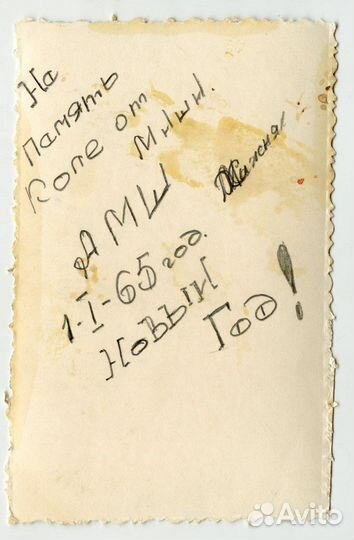 На
память
Коле от
Миши.
АМШ
1-I-65 год.
Новый
Год!
Avito